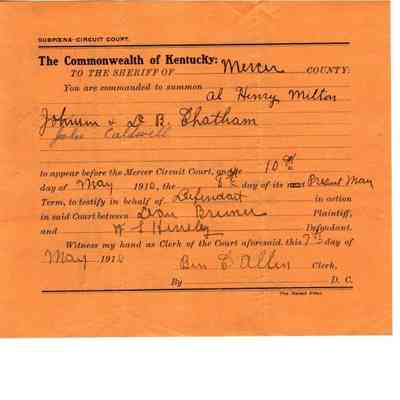 SUBPŒNA-CIRCUIT COURT.
The Commonwealth of Kentucky:
TO THE SHERIFF OF Mercer COUNTY:
You are commanded to summon Al Henry Milton
Johnson & D B. Chatham
John Caldwell
to appear before the Mercer Circuit Court, on the 10th
day of May 1910, the 8th day of its next Present May
Term, to testify in behalf of Defendant in action
in said Court between Plaintiff,
and W S Defendant.
Witness my hand as Clerk of the Court aforesaid, this 7th day of
May 1910 Ben C Allin Clerk,
By D. C.